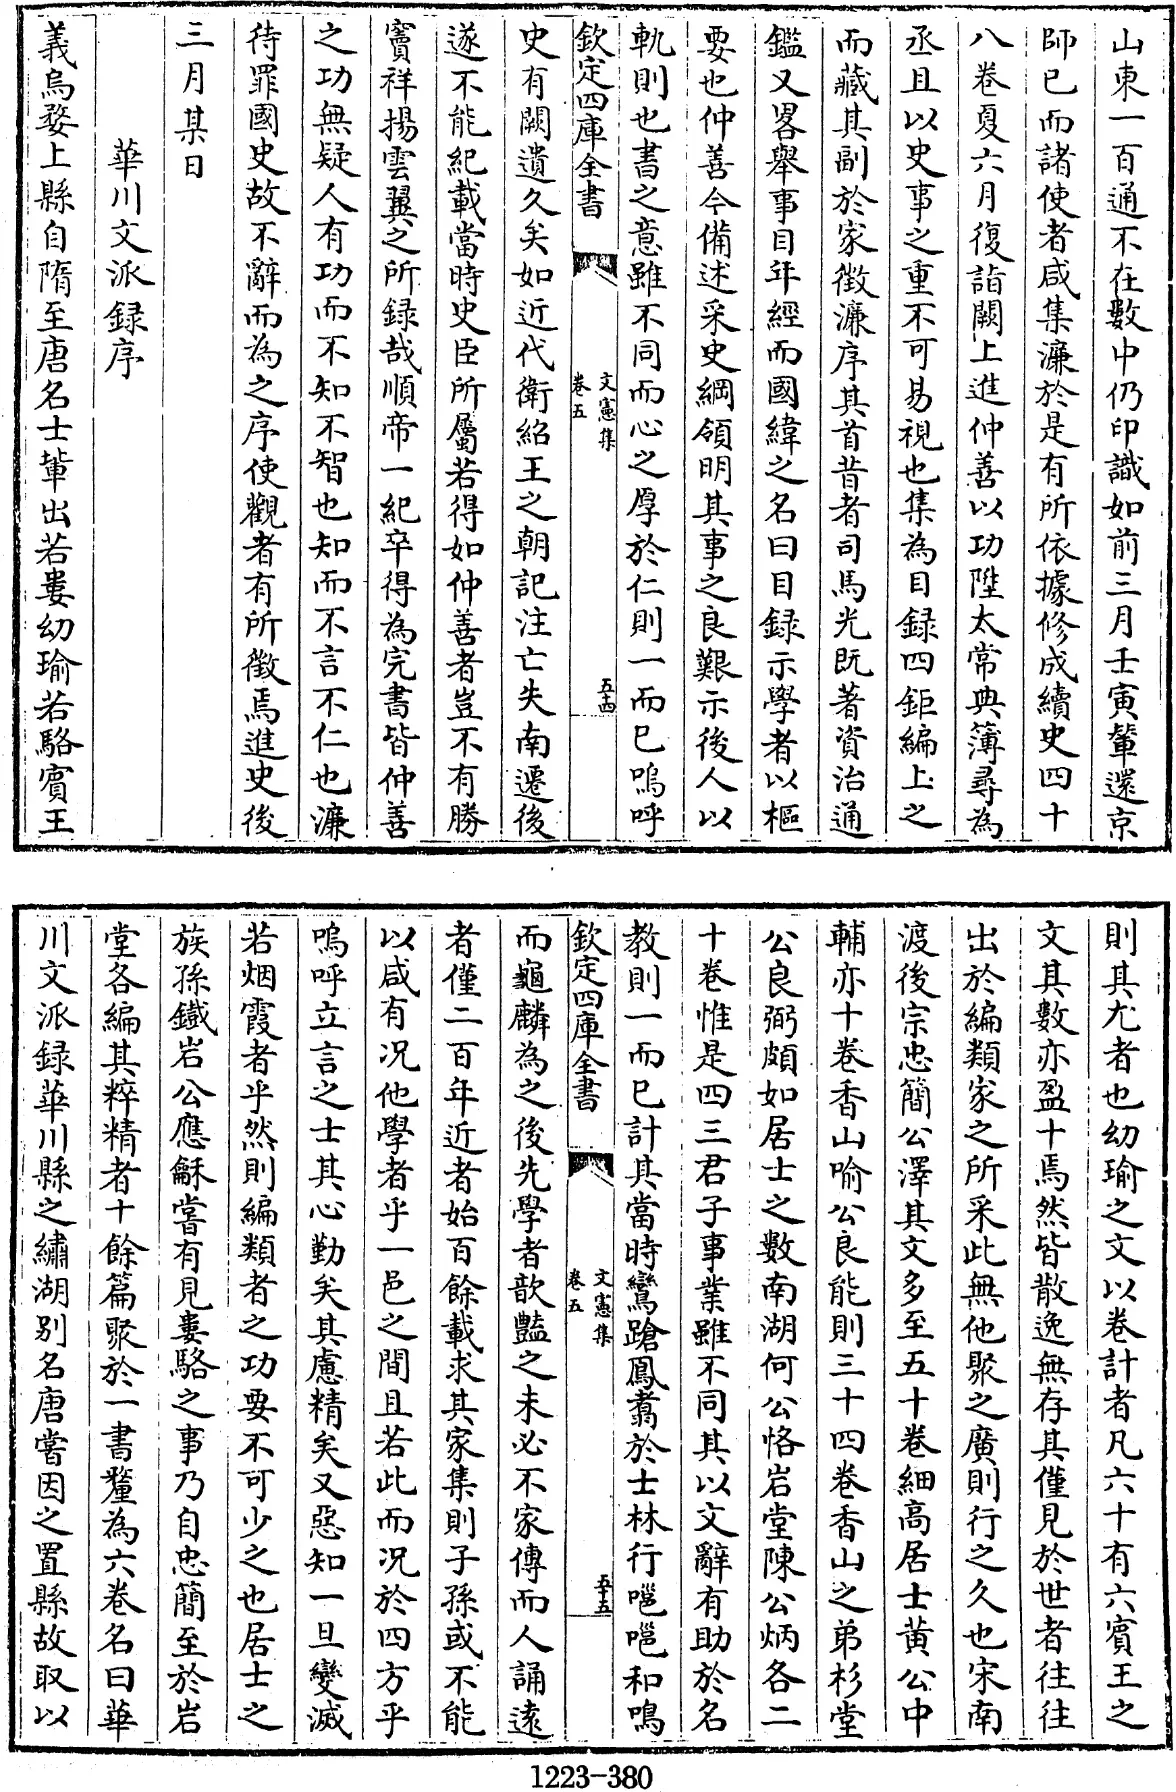 山東一百通不在數中仍印識如前三月壬寅輦還京
師已而諸使者咸集濂於是有所依據修成續史四十
八卷夏六月復詣闕上進仲善以功陞太常典簿尋為
丞且以史事之重不可易視也集為目録四鉅編上之
而藏其副於家徵濂序其首昔者司馬光既著資治通
鑑又畧舉事目年經而國緯之名曰目録示學者以樞
要也仲善今備述采史綱領明其事之良艱示後人以
軌則也書之意雖不同而心之厚於仁則一而已嗚呼
欽定四庫全書
文憲集
卷五
五十四
史有闕遺久矣如近代衛紹王之朝記注亡失南遷後
遂不能紀載當時史臣所屬若得如仲善者豈不有勝
竇祥揚雲翼之所録哉順帝一紀卒得為完書皆仲善
之功無疑人有功而不知不智也知而不言不仁也濂
待罪國史故不辭而為之序使觀者有所徵焉進史後
三月某日
華川文派録序
義烏婺上縣自隋至唐名士輩出若婁幼瑜若駱賓王
則其尤者也幼瑜之文以卷計者凡六十有六賓王之
文其數亦盈十焉然皆散逸無存其僅見於世者往往
出於編類家之所采此無他聚之廣則行之久也宋南
渡後宗忠簡公澤其文多至五十卷細高居士黄公中
輔亦十卷香山喻公良能則三十四卷香山之弟杉堂
公良弼頗如居士之數南湖何公恪岩堂陳公炳各二
十卷惟是四三君子事業雖不同其以文辭有助於名
教則一而已計其當時鸞蹌鳳翥於士林行嗈嗈和鳴
欽定四庫全書
文憲集
卷五
五十五
而龜麟為之後先學者歆豔之未必不家傳而人誦遠
者僅二百年近者始百餘載求其家集則子孫或不能
以咸有况他學者乎一邑之間且若此而况於四方乎
嗚呼立言之士其心勤矣其慮精矣又惡知一旦變滅
若烟霞者乎然則編類者之功要不可少之也居士之
族孫鐵岩公應龢嘗有見婁駱之事乃自忠簡至於岩
堂各編其粹精者十餘篇聚於一書釐為六卷名曰華
川文派録華川縣之繡湖别名唐嘗因之置縣故取以
1223-380